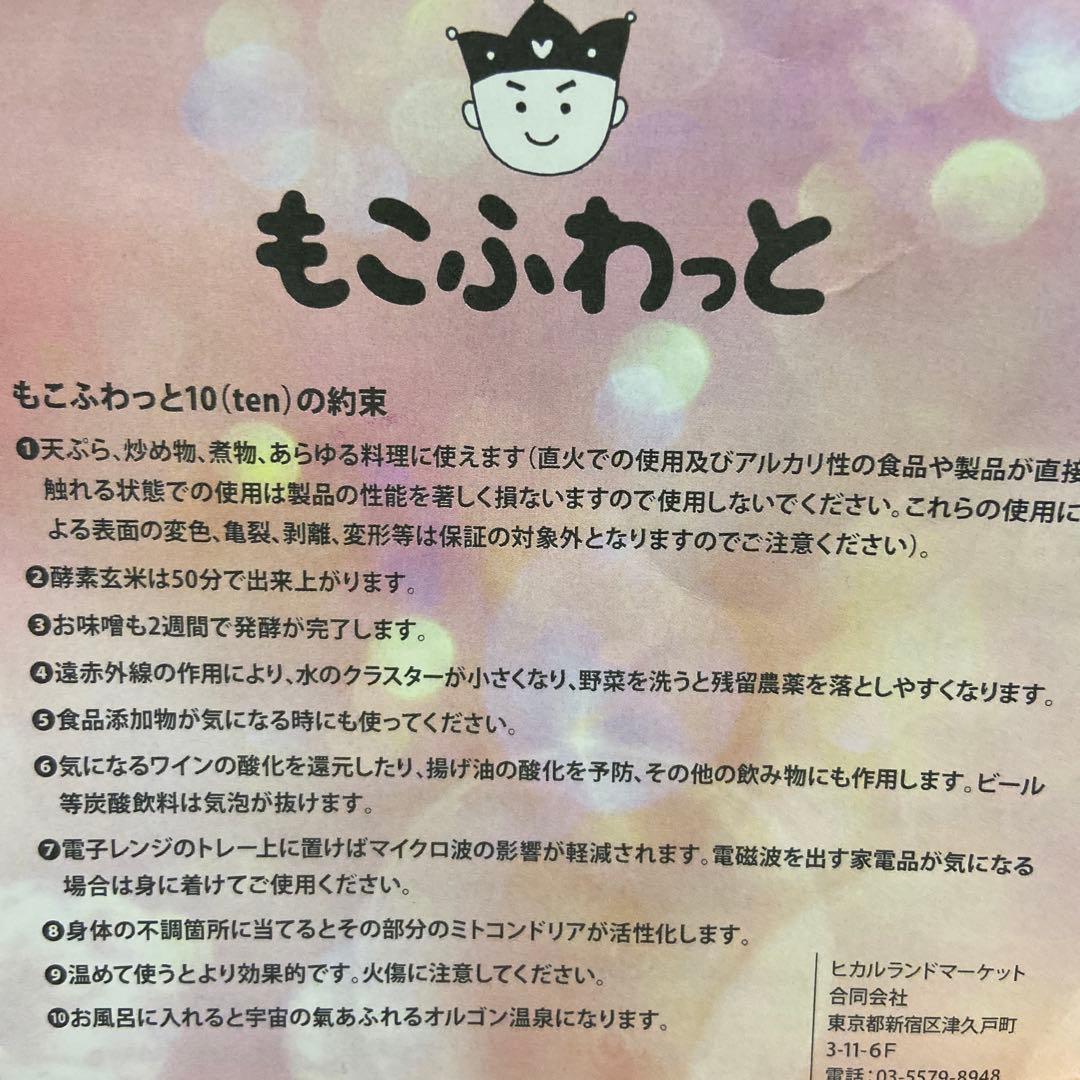 もこふわっと
もこふわっと10(ten)の約束
❶天ぷら、炒め物、煮物、あらゆる料理に使えます(直火での使用及びアルカリ性の食品や製品が直接
触れる状態での使用は製品の性能を著しく損ないますので使用しないでください。これらの使用に
よる表面の変色、亀裂、剥離、変形等は保証の対象外となりますのでご注意ください)。
❷酵素玄米は50分で出来上がります。
❸お味噌も2週間で発酵が完了します。
❹遠赤外線の作用により、水のクラスターが小さくなり、野菜を洗うと残留農薬を落としやすくなります。
❺食品添加物が気になる時にも使ってください。
❻気になるワインの酸化を還元したり、揚げ油の酸化を予防、その他の飲み物にも作用します。ビール
等炭酸飲料は気泡が抜けます。
❼電子レンジのトレー上に置けばマイクロ波の影響が軽減されます。電磁波を出す家電品が気になる
場合は身に着けてご使用ください。
❽身体の不調箇所に当てるとその部分のミトコンドリアが活性化します。
❾温めて使うとより効果的です。火傷に注意してください。
❿お風呂に入れると宇宙の氣あふれるオルゴン温泉になります。
ヒカルランドマーケット
合同会社
東京都新宿区津久戸町
3-11-6F
電話:03-5579-8948